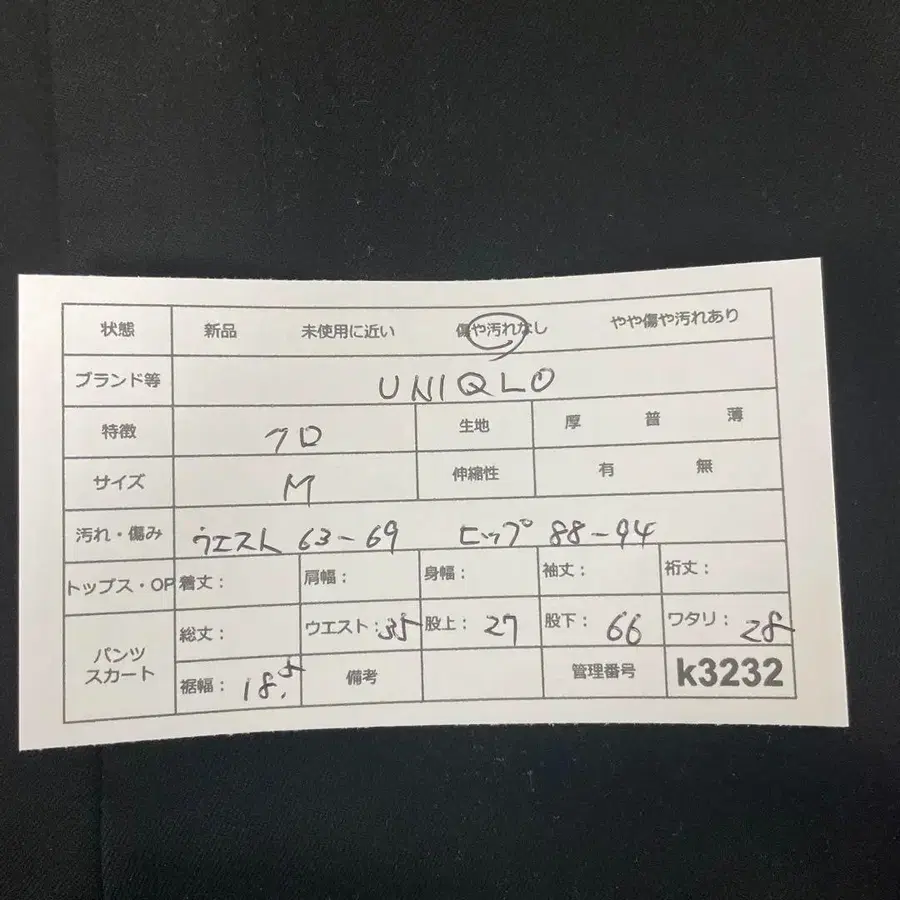 状態 新品 未使用に近い 傷や汚れなし やや傷や汚れあり
ブランド等 UNIQLO
特徴 クロ 生地 厚 普 薄
サイズ M 伸縮性 有 無
汚れ・傷み ウエスト 63-69 ヒップ 88-94
トップス・OP 着丈: 肩幅: 身幅: 袖丈: 裄丈:
パンツ スカート 総丈: ウエスト:35 股上: 27 股下: 66 ワタリ: 28
裾幅: 18.5 備考 管理番号 k3232